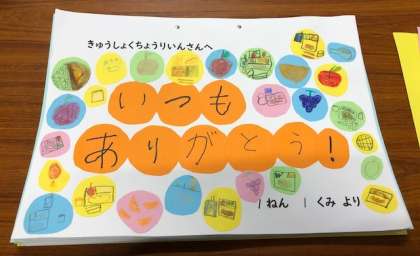 きゅうしょくちょうりいんさんへ
いつも
ありがとう!
1ねん 1くみ より